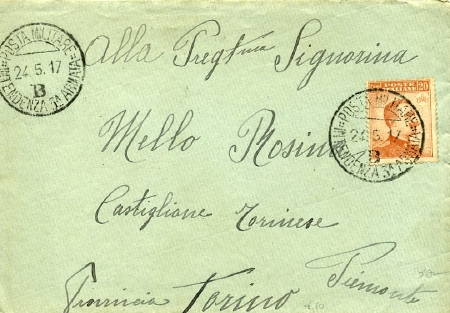 POSTA MILITARE
24.5.17
B
INTENDENZA 3ª ARMATA
Alla Pregtma Signorina
POSTE ITALIANE
20
POSTA MILITARE
24.5.17
B
INTENDENZA 3ª ARMATA
Mello Rosina
Castiglione Torinese
Provincia Torino Piemonte